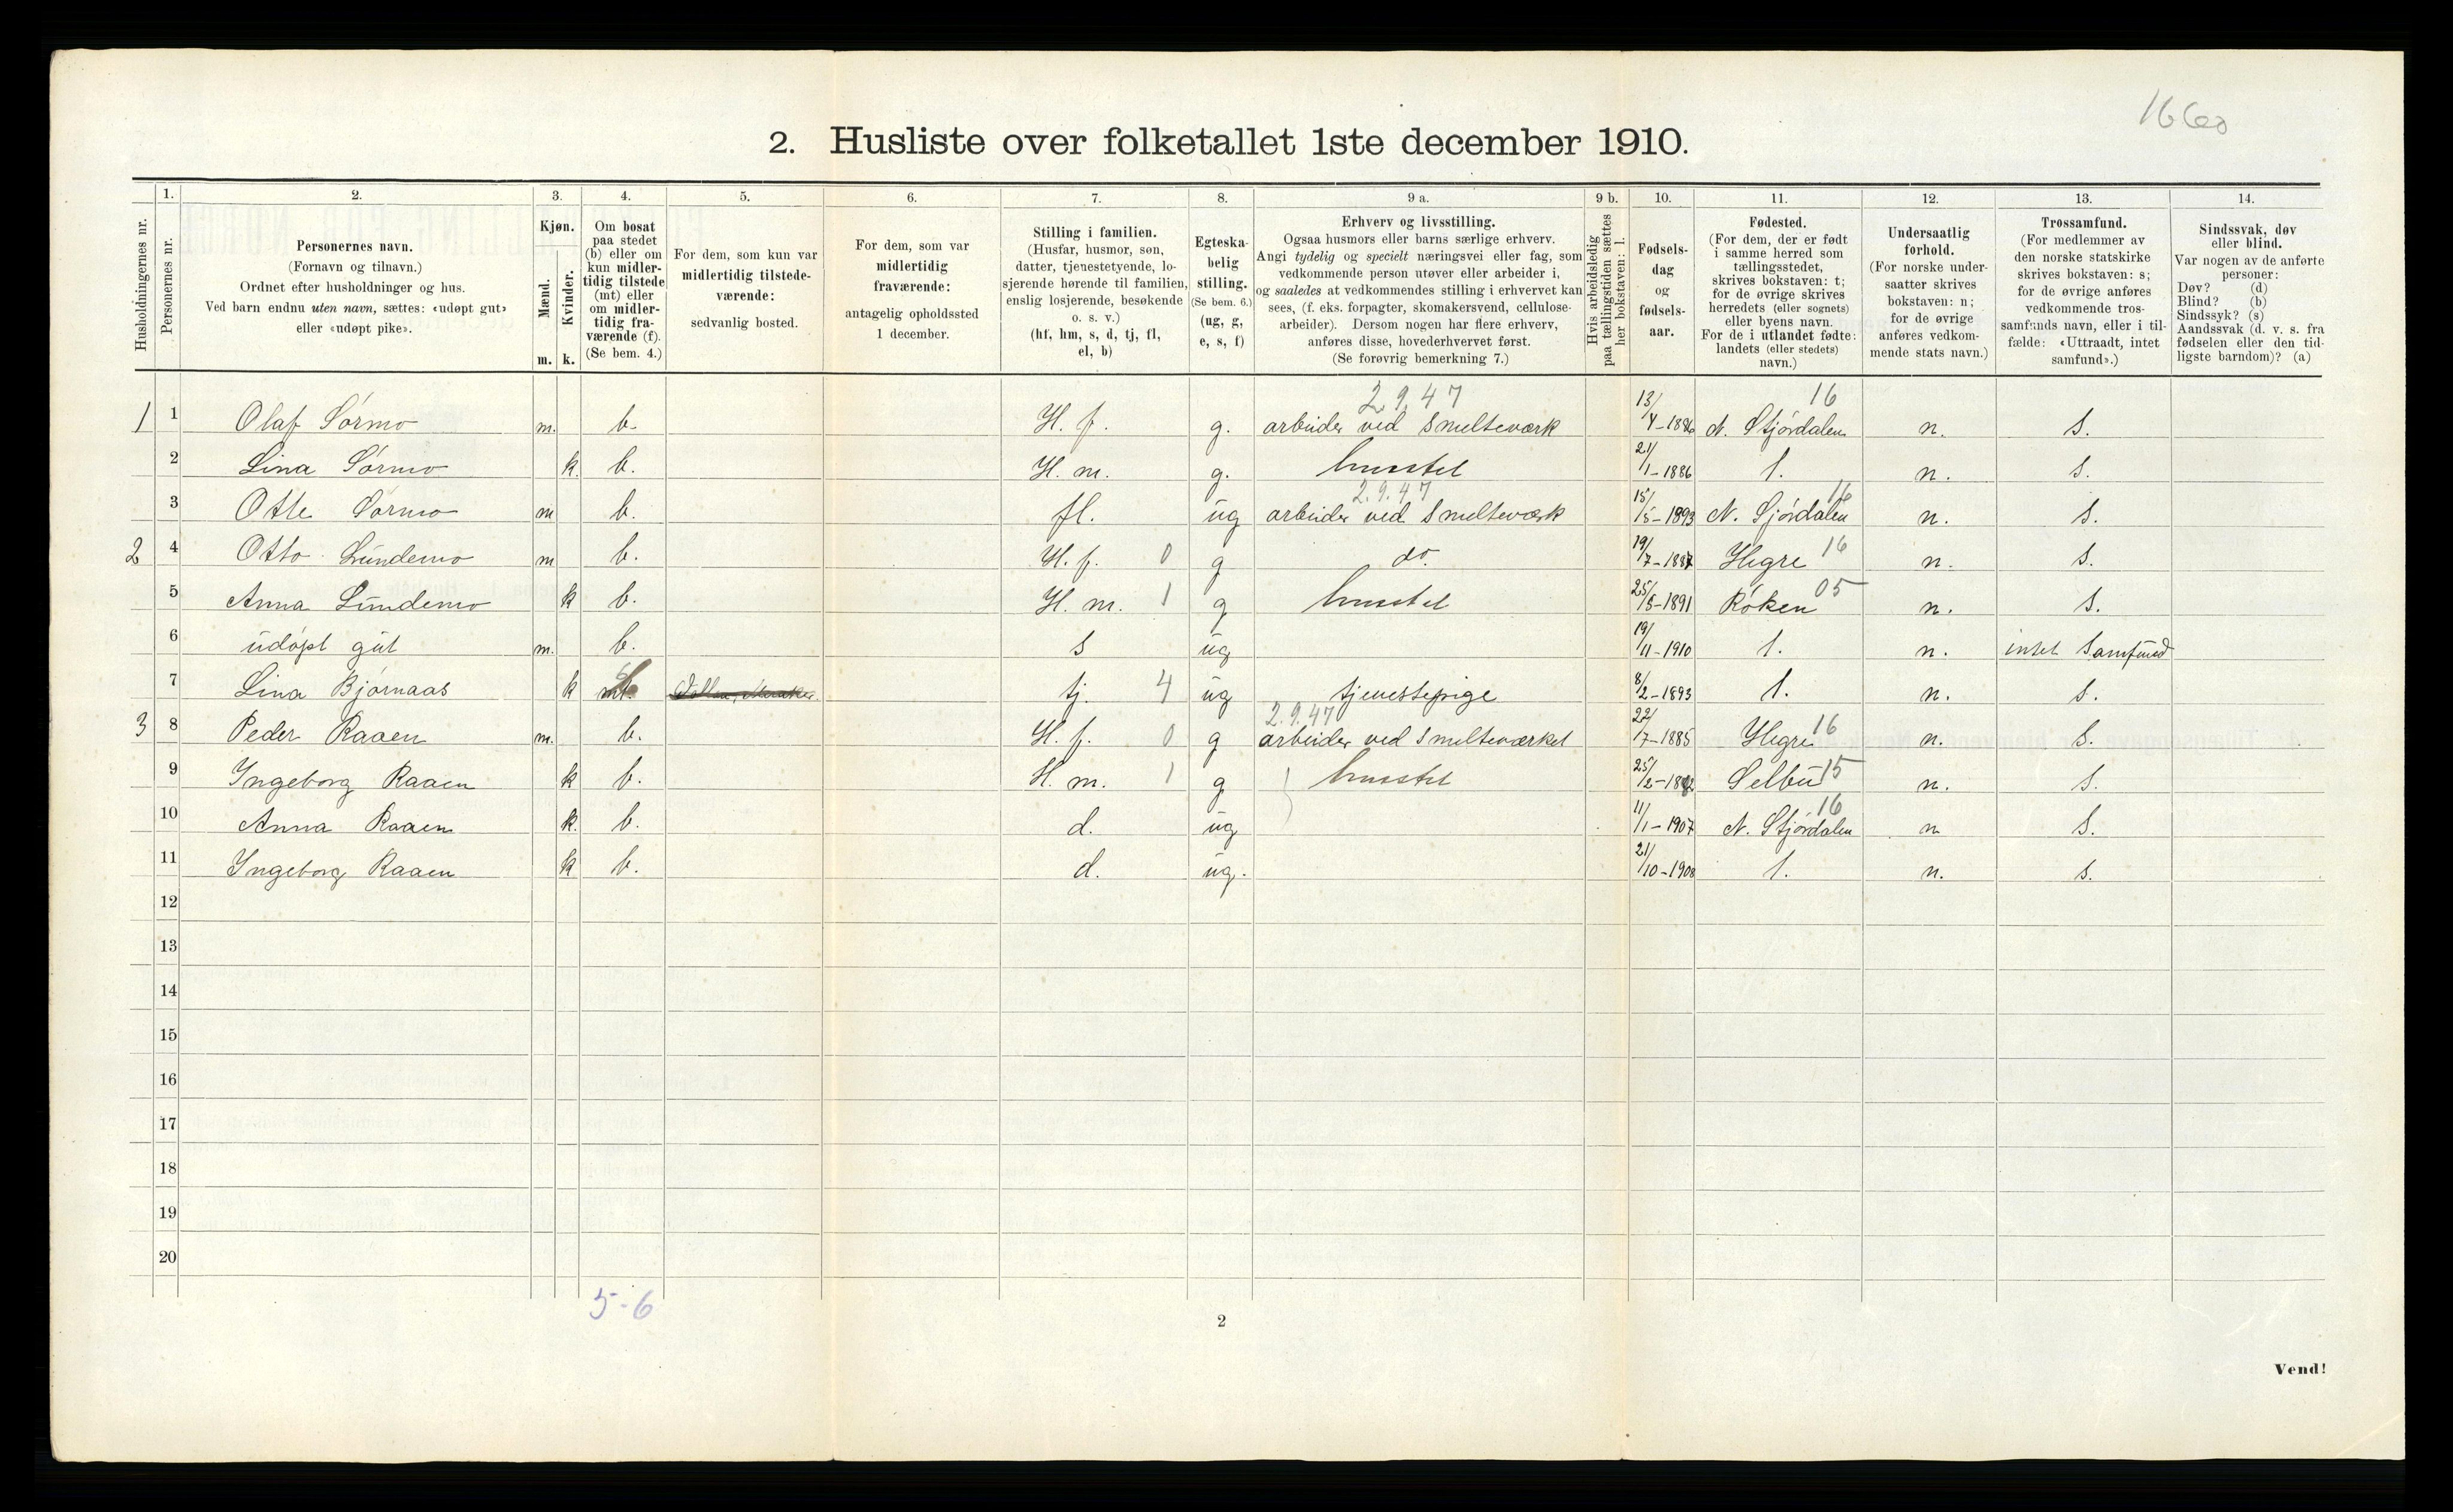 16600
2. Husliste over folketallet 1ste december 1910.
Husholdningernes nr.
1. Personernes nr.
2. Personernes navn.
(Fornavn og tilnavn.)
Ordnet efter husholdninger og hus.
Ved barn endnu uten navn, sættes: «udøpt gut»
eller «udøpt pike».
3. Kjøn.
Mænd. m.
Kvinder. k.
4. Om bosat
paa stedet
(b) eller om
kun midler-
tidig tilstede
(mt) eller
om midler-
tidig fra-
værende (f).
(Se bem. 4.)
5. For dem, som kun var
midlertidig tilstede-
værende:
sedvanlig bosted.
6. For dem, som var
midlertidig
fraværende:
antagelig opholdssted
1 december.
7. Stilling i familien.
(Husfar, husmor, søn,
datter, tjenestetyende, lo-
sjerende hørende til familien,
enslig losjerende, besøkende
o. s. v.)
(hf, hm, s, d, tj, fl,
el, b)
8. Egteska-
belig
stilling.
(Se bem. 6.)
(ug, g,
e, s, f)
9 a. Erhverv og livsstilling.
Ogsaa husmors eller barns særlige erhverv.
Angi tydelig og specielt næringsvei eller fag, som
vedkommende person utøver eller arbeider i,
og saaledes at vedkommendes stilling i erhvervet kan
sees, (f. eks. forpagter, skomakersvend, cellulose-
arbeider). Dersom nogen har flere erhverv,
anføres disse, hovederhvervet først.
(Se forøvrig bemerkning 7.)
9 b. Hvis arbeidsledig
paa tællingstiden sættes
her bokstaven: l.
10. Fødsels-
dag
og
fødsels-
aar.
11. Fødested.
(For dem, der er født
i samme herred som
tællingsstedet,
skrives bokstaven: t;
for de øvrige skrives
herredets (eller sognets)
eller byens navn.
For de i utlandet fødte:
landets (eller stedets)
navn.)
12. Undersaatlig
forhold.
(For norske under-
saatter skrives
bokstaven: n;
for de øvrige
anføres vedkom-
mende stats navn.)
13. Trossamfund.
(For medlemmer av
den norske statskirke
skrives bokstaven: s;
for de øvrige anføres
vedkommende tros-
samfunds navn, eller i til-
fælde: «Uttraadt, intet
samfund».)
14. Sindssvak, døv
eller blind.
Var nogen av de anførte
personer:
Døv? (d)
Blind? (b)
Sindssyk? (s)
Aandssvak (d. v. s. fra
fødselen eller den tid-
ligste barndom)? (a)
2.9.47 16
1 1 Olaf Sørmo m. b. H. f. g. arbeider ved Smelteværk 13/4-1886 N. Stjørdalen n. s.
2 Lina Sørmo k. b. H. m. g. husstel 21/1-1886 t. n. s.
2.9.47 16
3 Otte Sørmo m b. fl. ug arbeider ved Smelteværk 15/5-1893 N. Sjørdalen n. s.
2 4 Otto Lundemo m b. H. f. 0 g do. 19/7-1887 Hegre 16 n. s.
5 Anna Lundemo k b. H. m. 1 g husstel 25/5-1891 Røken 05 n. s.
6 udøpt gut m. b. s ug 19/11-1910 t. n. intet Samfund
7 Lina Bjørnaas k mt. b tj. 4 ug tjenestepige 8/2-1893 t. n. s.
2.9.47
3 8 Peder Raaen m. b. H. f. 0 g arbeider ved Smelteværket 22/7-1885 Hegre 16 n. s.
9 Ingeborg Raaen k b. H. m. 1 g husstel 25/2-1882 Selbu 15 n. s.
10 Anna Raaen k. b. d. ug 11/1-1907 N. Stjørdalen 16 n s.
11 Ingeborg Raaen k b. d. ug. 21/10-1908 t. n. s.
12
13
14
15
16
17
18
19
20
5-6
2
Vend!